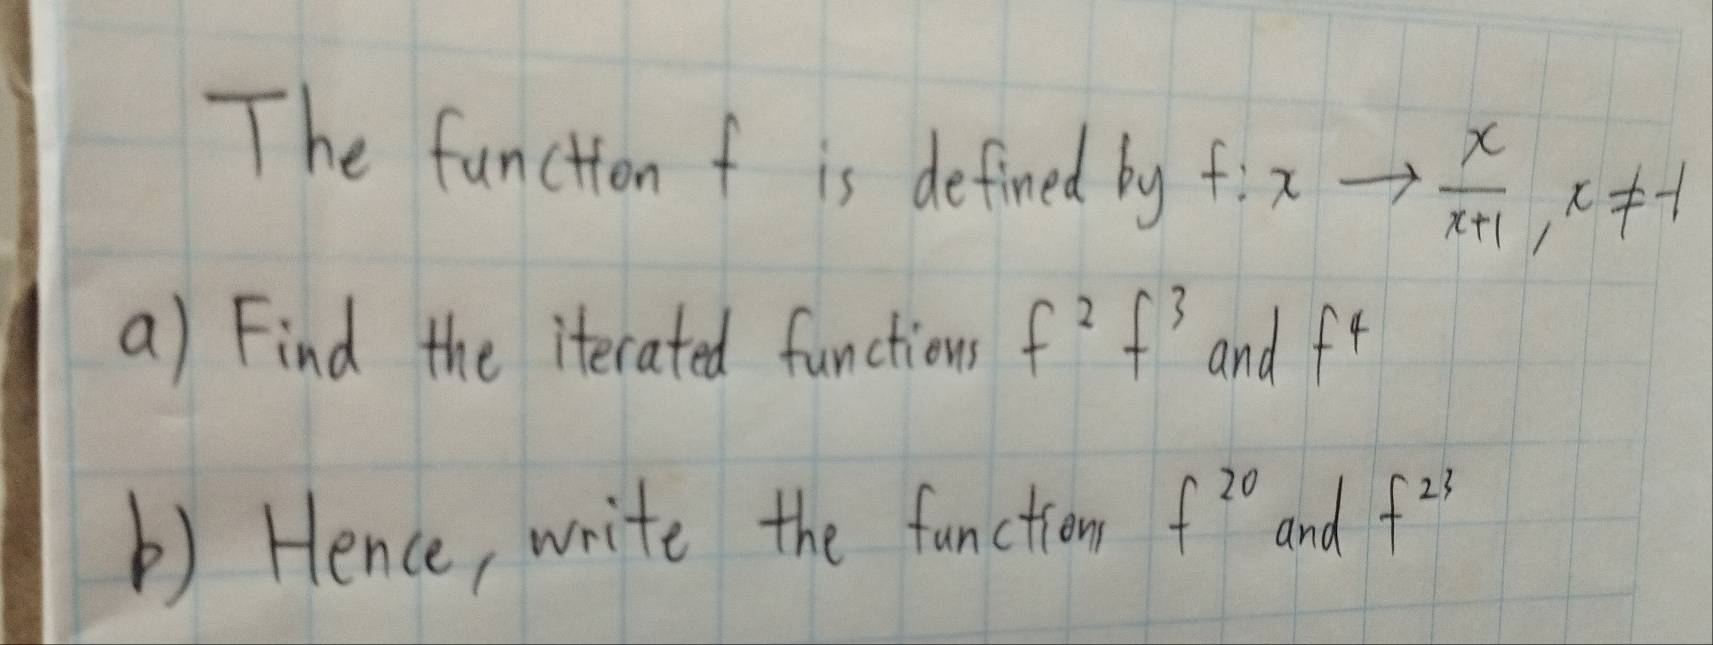 The function f is defined by f: x → x/(x+1), x ≠ -1
a) Find the iterated functions f² f³ and f⁴
b) Hence, write the functions f²⁰ and f²³